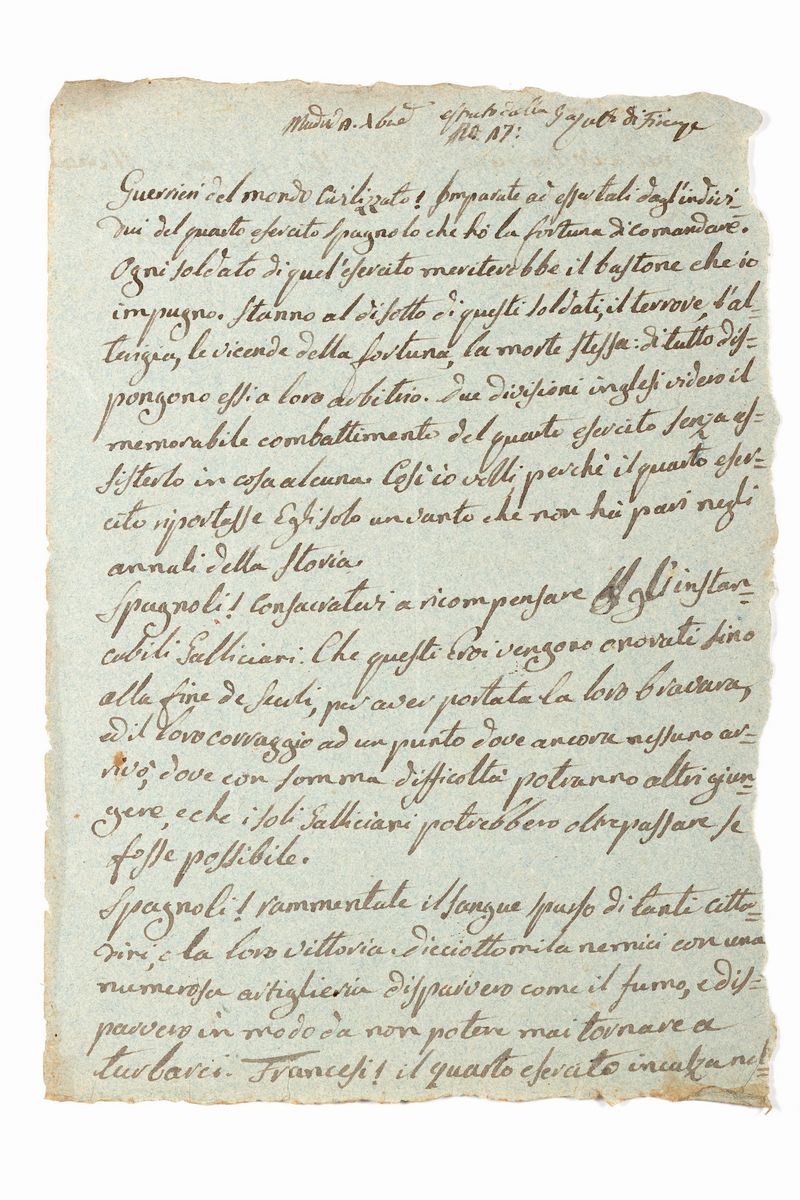 Madrid 11. Xbre estratto dalla Gazzetta di Firenze
No. 17:
Guerrieri del mondo civilizzato! Imparate ad esser tali dagl'indivi-
dui del quarto esercito spagnolo che hò la fortuna di comandare.
Ogni soldato di quel'esercito meriterebbe il bastone che io
impugno. Stanno al disotto di questi soldati, il terrore, l'al-
terigia, le vicende della fortuna, la morte stessa: di tutto dis-
pongono essi a loro arbitrio. Due divisioni inglesi videro il
memorabile combattimento del quarto esercito senza as-
sisterlo in cosa alcuna. Così io volli, perchè il quarto eser-
cito riportasse Egli solo un vanto che non hà pari negli
annali della storia.
Spagnoli! Consacratevi a ricompensare gl'instan-
cabili Galliciani. Che questi Eroi vengono onorati sino
alla fine de Secoli, per aver portata la loro bravura,
ed il loro corraggio ad un punto dove ancora nessuno ar-
rivò, dove con somma difficoltà potranno altri giun-
gere, e che i soli Galliciani potrebbero oltrepassare se
fosse possibile.
Spagnoli! rammentate il sangue sparso di tanti citta-
dini, e la loro vittoria. dicciottomila nemici con una
numerosa artiglieria disparvero come il fumo, e dis-
parvero in modo da non potere mai tornare a
turbarci. Francesi! il quarto esercito incalza